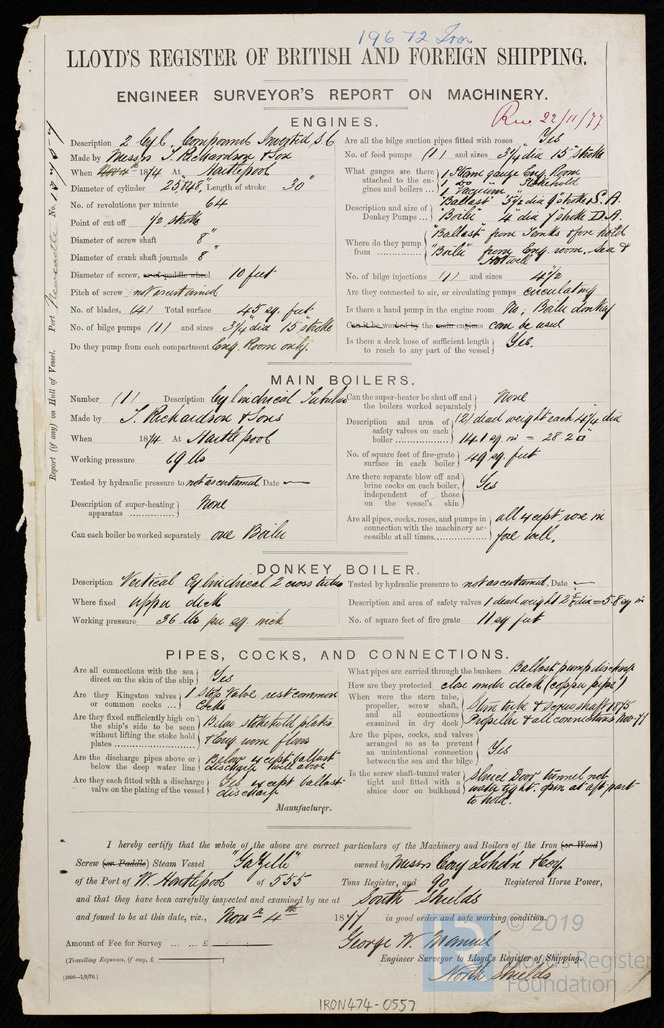 19672 Iron
LLOYD'S REGISTER OF BRITISH AND FOREIGN SHIPPING.
ENGINEER SURVEYOR'S REPORT ON MACHINERY.
Rec 22/11/77
Port Newcastle No.
Report (if any) on Hull of Vessel.
ENGINES.
Description 2 Cyl. Compound Inverted S.C
Made by Messrs T. Richardson & Son
When 1874 At Hartlepool
Diameter of cylinder 25" & 48" Length of stroke 30"
No. of revolutions per minute 64
Point of cut off 1/2 stroke
Diameter of screw shaft 8"
Diameter of crank shaft journals 8"
Diameter of screw, or of paddle wheel 10 feet
Pitch of screw not ascertained
No. of blades, (4) Total surface 45 sq. feet
No. of bilge pumps (1) and sizes 3 1/4 dia 15" stroke
Do they pump from each compartment Eng. Room only.
Are all the bilge suction pipes fitted with roses Yes
No. of feed pumps (1) and sizes 3 1/4 dia 15" stroke
What gauges are there attached to the engines and boilers ... 1 Steam gauge Eng. Room
1 do Stokehold
1 Vacuum "
Description and size of Donkey Pumps ... "Ballast" 5 1/2 dia 9" stroke S.A.
"Boiler" 4" dia 7" stroke D.A.
Where do they pump from ............ "Ballast" from Tanks & fore hold
"Boiler" from Eng. room, Sea &
Hotwell
No. of bilge injections (1) and sizes 4 1/2
Are they connected to air, or circulating pumps circulating
Is there a hand pump in the engine room No, Boiler donkey
Can it be worked by the main engines can be used
Is there a deck hose of sufficient length to reach to any part of the vessel Yes.
MAIN BOILERS.
Number (1) Description Cylindrical Tubular
Made by T. Richardson & Sons
When 1874 At Hartlepool
Working pressure 69 lbs
Tested by hydraulic pressure to not ascertained Date —
Description of super-heating apparatus ............ None
Can each boiler be worked separately one Boiler
Can the super-heater be shut off and the boilers worked separately None
Description and area of safety valves on each boiler ............ (2) dead weight each 4 1/4 dia
14.1 sq. in = 28.2 □"
No. of square feet of fire-grate surface in each boiler 49 sq. feet
Are there separate blow off and brine cocks on each boiler, independent of those on the vessel's skin Yes
Are all pipes, cocks, roses, and pumps in connection with the machinery accessible at all times............ all except rose in
fore well.
DONKEY BOILER.
Description Vertical Cylindrical 2 cross tubes
Where fixed upper deck
Working pressure 36 lbs per sq. inch
Tested by hydraulic pressure to not ascertained, Date —
Description and area of safety valves 1 dead weight dia = 5.8 sq in
No. of square feet of fire grate 11 sq feet
PIPES, COCKS, AND CONNECTIONS.
Are all connections with the sea direct on the skin of the ship Yes
Are they Kingston valves or common cocks ... 1 Stop Valve rest common
Cocks
Are they fixed sufficiently high on the ship's side to be seen without lifting the stoke hold plates .................. Below stokehold plates
& Eng room floors
Are the discharge pipes above or below the deep water line Below except ballast
discharge
Are they each fitted with a discharge valve on the plating of the vessel Yes except ballast
discharge
Manufacturer.
What pipes are carried through the bunkers Ballast pump discharge
How are they protected close under deck (copper pipe)
When were the stern tube, propeller, screw shaft, and all connections examined in dry dock Stern tube & screw shaft 1875
Propeller & all connections Nov 77
Are the pipes, cocks, and valves arranged so as to prevent an unintentional connection between the sea and the bilge Yes
Is the screw shaft-tunnel water tight and fitted with a sluice door on bulkhead Sluice Door tunnel not
water tight. open at aft part
to hold.
I hereby certify that the whole of the above are correct particulars of the Machinery and Boilers of the Iron (or Wood)
Screw (or Paddle) Steam Vessel "Gazelle" owned by Messrs Cory London & Coy.
of the Port of W. Hartlepool of 555 Tons Register, and 90 Registered Horse Power,
and that they have been carefully inspected and examined by me at South Shields
and found to be at this date, viz., Novr 4th 1877 in good order and safe working condition.
Amount of Fee for Survey ... ... £
(Travelling Expenses, if any, £
George W. Manuel
Engineer Surveyor to Lloyd's Register of Shipping.
North Shields
© 2019
Lloyd's Register
Foundation
IRON474-0557